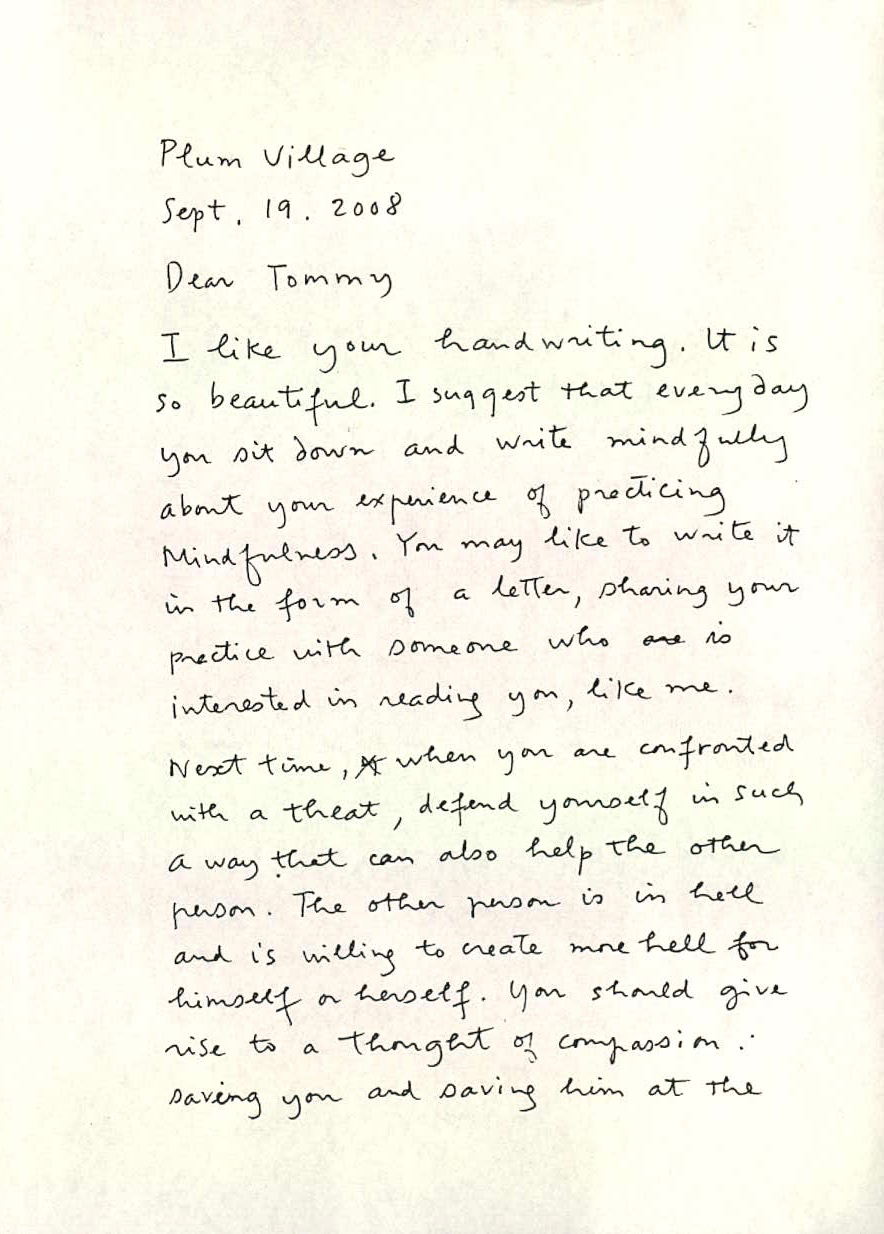 Plum Village
Sept. 19. 2008
Dear Tommy
I like your handwriting. It is
so beautiful. I suggest that every day
you sit down and write mindfully
about your experience of practicing
Mindfulness. You may like to write it
in the form of a letter, sharing your
practice with someone who are is
interested in reading you, like me.
Next time, when you are confronted
with a threat, defend yourself in such
a way that can also help the other
person. The other person is in hell
and is willing to create more hell for
himself or herself. You should give
rise to a thought of compassion :
saving you and saving him at the